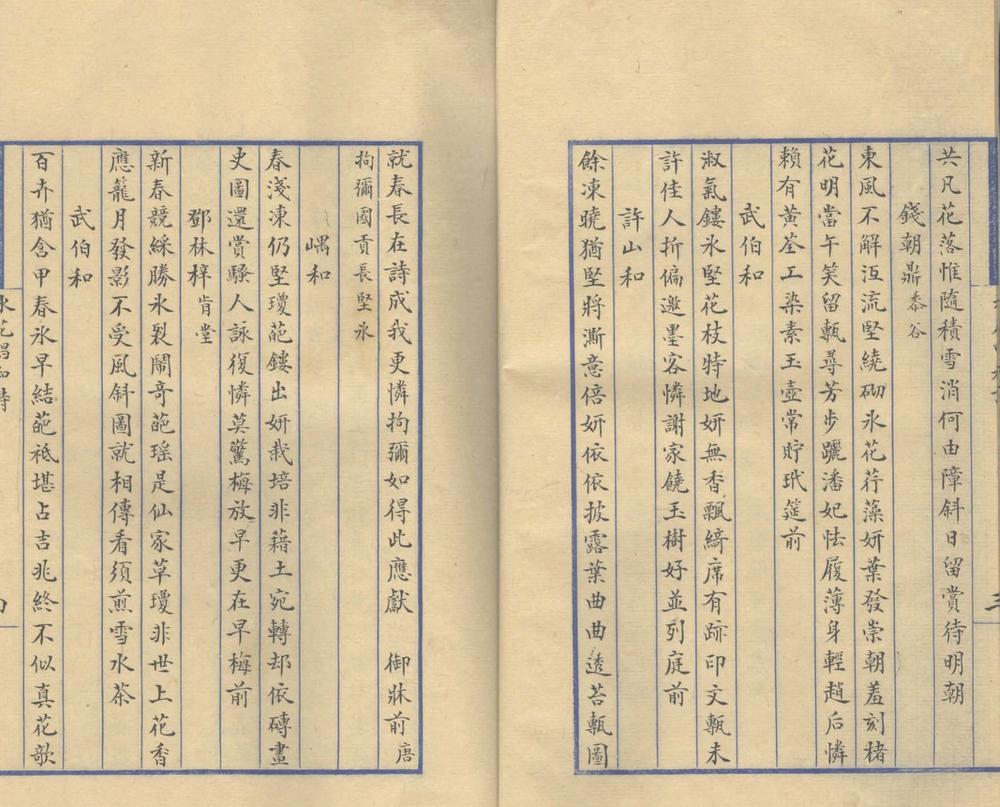 共凡花落惟隨積雪消何由障斜日留賞待明朝
錢朝鼎黍谷
東風不解沍流堅繞砌氷花荇藻妍葉發崇朝羞刻楮
花明當午笑留甎尋芳步躧潘妃怯履薄身輕趙后憐
賴有黃荃工染素玉壺常貯玳筵前
武伯和
淑氣鏤氷堅花枝特地妍無香飄綺席有跡印文甎未
許佳人折偏邀墨客憐謝家饒玉樹好並列庭前
許山和
餘凍曉猶堅將澌意倍妍依依披露葉曲曲透苔甎圖
就春長在詩成我更憐拘彌如得此應獻 御牀前唐
拘彌國貢長堅氷
嵎和
春淺凍仍堅瓊葩鏤出妍栽培非藉土宛轉却依磚畫
史圖還賞騷人詠復憐莫驚梅放早更在早梅前
鄧林梓肯堂
新春競綵勝氷裂鬧奇葩瑶是仙家草瓊非世上花香
應籠月發影不受風斜圖就相傳看須煎雪水茶
武伯和
百卉猶含甲春氷早結葩祇堪占吉兆終不似真花歌